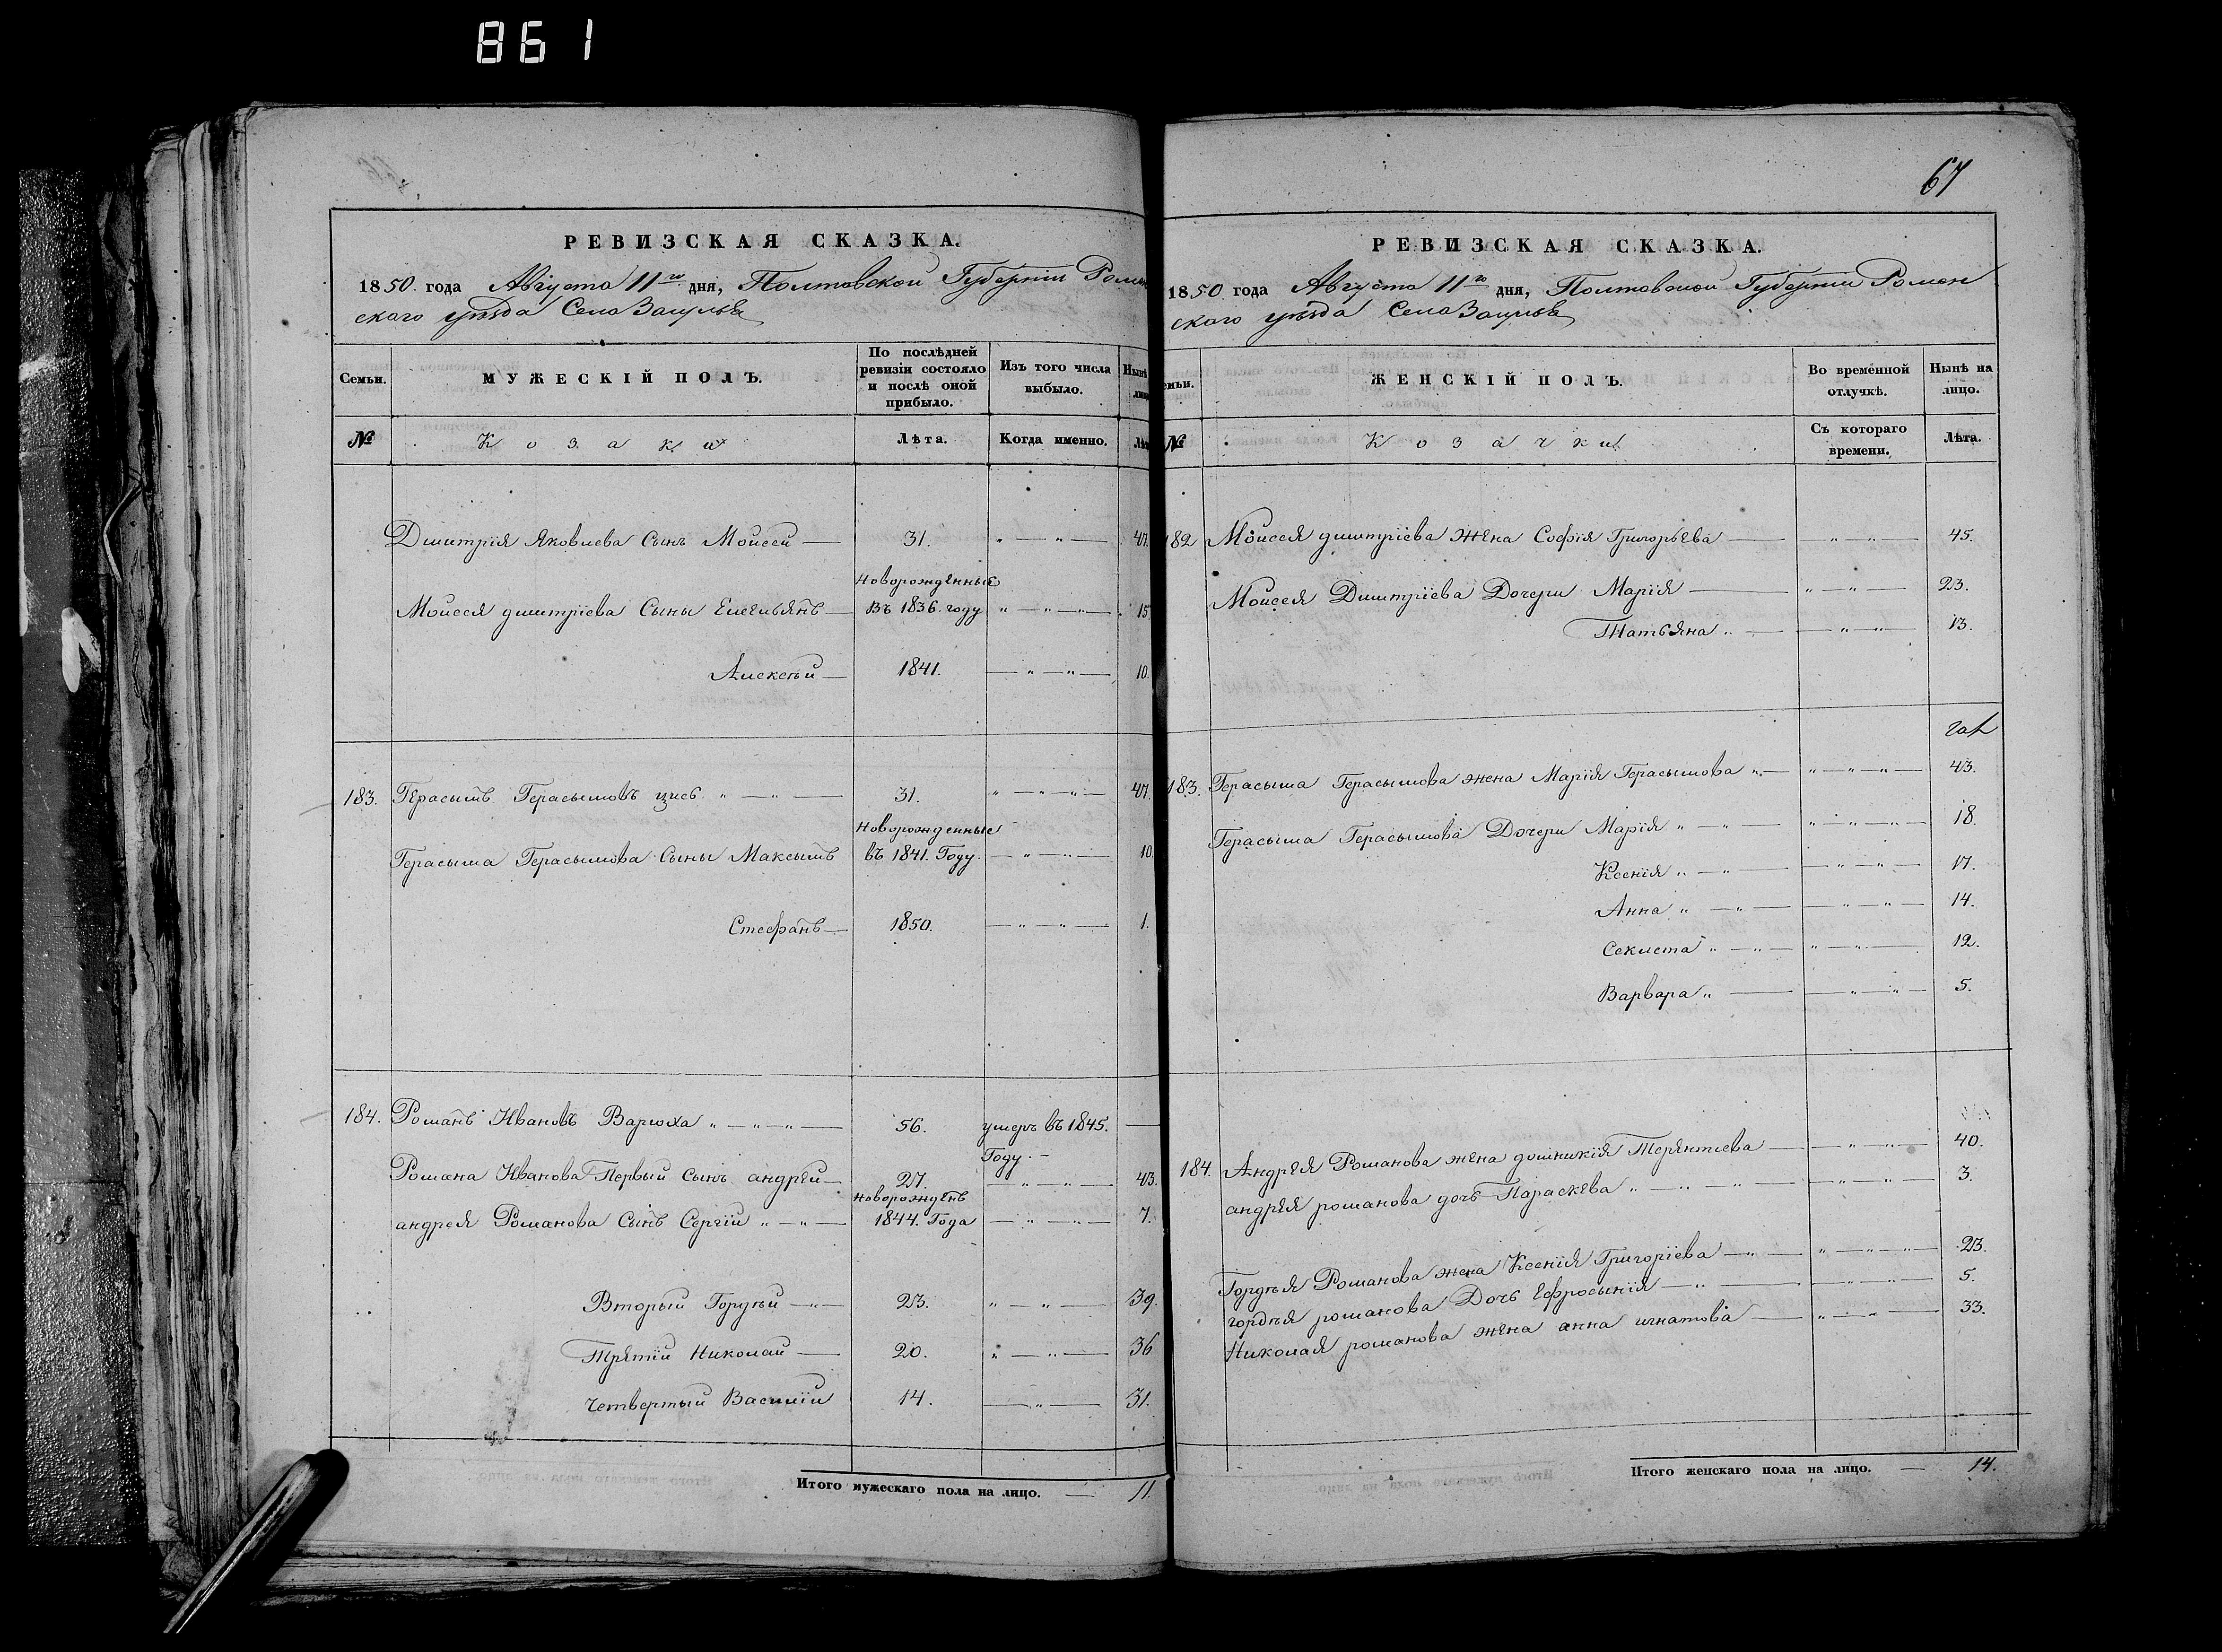 861
РЕВИЗСКАЯ СКАЗКА.
1850 года Августа 11го дня, Полтавской Губерніи Ромен
скаго уѣзда Села
Семьи.
МУЖЕСКІЙ ПОЛЪ.
По послѣдней ревизіи состояло и послѣ оной прибыло.
Изъ того числа выбыло.
Нынѣ
№
Козаки
Лѣта.
Когда именно.
Дмитрія Яковлева Сынъ Моисей — 31. „ — „ — 47.
Новорожденные
Моисея дмитріева Сыны Емельянъ — Въ 1836. году „ — „ — „ — 15.
Алексѣй — 1841. — „ — „ — 10.
183. Герасымъ Герасымовъ „ — „ — 31. „ — „ — „ — 47.
Новорожденные
Герасыма Герасымова Сыны Максымъ въ 1841. Году. — „ — „ — 10.
Стефанъ — 1850. — „ — „ — 1.
184. Романъ Ивановъ Варюха „ — „ — „ — 56. умеръ въ 1845. —
Году. —
Романа Иванова Первый Сынъ андрей — 27. — „ — „ — 43.
новорожденъ
андрея Романова Сынъ Сергій „ — „ — 1844. Года — „ — „ — 7.
Вторый Гордѣй — „ — 23. „ — „ — 39.
Третій Николай — 20. „ — „ — 36
Четвертый Василій 14. — „ — 31.
Итого мужескаго пола на лицо. — 11.
67
РЕВИЗСКАЯ СКАЗКА.
1850 года Августа 11го дня, Полтавской Губерніи Ромен
скаго уѣзда Села
емьи.
ЖЕНСКІЙ ПОЛЪ.
Во временной отлучкѣ.
Нынѣ на лицо.
№
Козачки
Съ котораго времени.
Лѣта.
182 Моисея дмитріева Жена Софія Григорьева — „ — „ — 45.
Моисея Дмитріева Дочери Марія — „ — „ — 23.
Татьяна „ — „ — „ — 13.
183. Герасыма Герасымова жена Марія Герасымова „ — „ — „ — „ — 43.
Герасыма Герасымова Дочери Марія „ — „ — „ — „ — „ — 18.
Ксенія „ — „ — „ — „ — 17.
Анна „ — „ — „ — „ — 14.
Секлета „ — „ — „ — „ — 12.
Варвара „ — „ — „ — 5.
184. Андрея Романова жена домникія Терентіева — „ — „ — 40.
андрея романова дочь Параскева „ — „ — „ — „ — „ — 3.
Гордѣя Романова жена Ксенія Григоріева — „ — „ — „ — „ — 23.
гордѣя романова Дочь Ефросынія — „ — „ — „ — 5.
Николая романова жена анна игнатова — „ — „ — 33.
Итого женскаго пола на лицо. — 14.